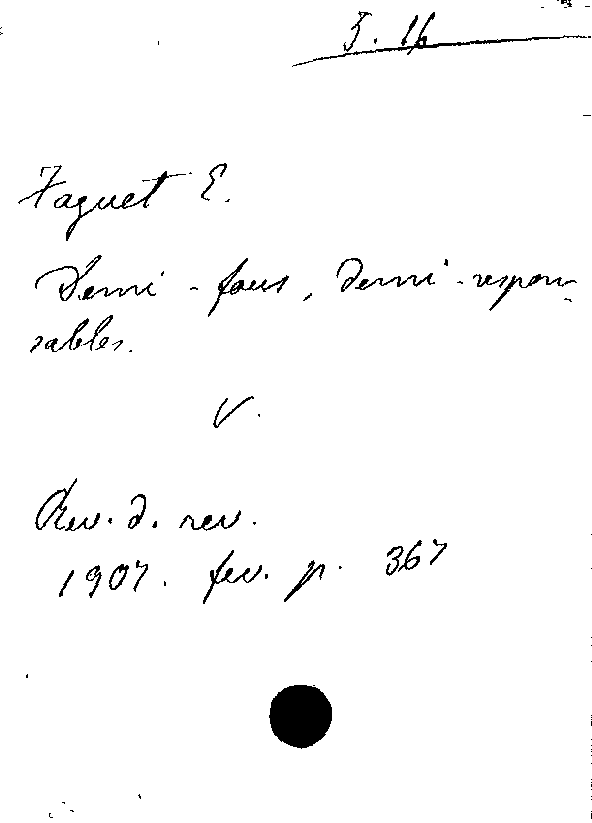 5. 16
Faguet E.
Demi-fous, demi-respon-
sables.
V.
Rev. d. rev.
1907. fev. p. 367